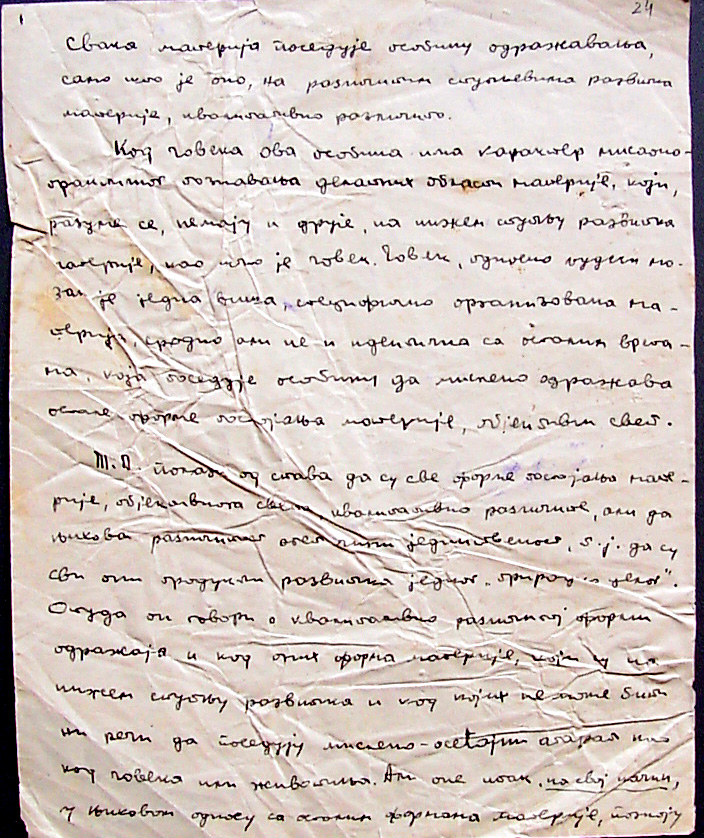 24
Свака материја поседује особину одражавања,
само што је оно, на различитим ступњевима развитка
материје, квалитативно различито.
Код човека ова особина има карактер мисаоно-
сазнавања делатних области материје, који,
разуме се, немају и друге, на нижем ступњу развитка
материје, као што је човек. Човек, односно људски мо-
зак је једна виша, специфично организована ма-
терија, сродна али не и идентична са осталим врста-
ма, која поседује особину да мислено одражава
остале форме постојања материје, објективни свет.
Т.П. полази од става да су све форме постојања мате-
рије, објективнога света, квалитативно различите, али да
њихова различитост чини јединственост, т.ј. да су
сви они продукти развитка једног „природног дела“.
Отуда он говори о квалитативно различитој форми
одражаја и код оних форма материје, који су на
нижем ступњу развитка и код којих не може бити
ни речи да поседују мислено-осећајни апарат као
код човека или животиња. Али оне ипак, на свој начин,
у њиховом односу са осталим формама материје,